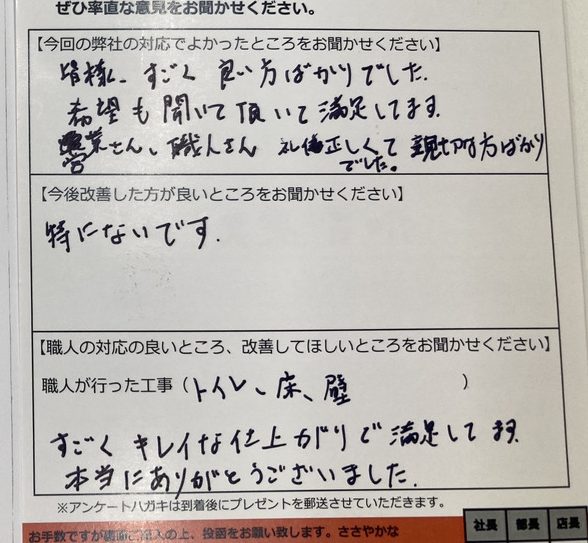 ぜひ率直な意見をお聞かせください。
【今回の弊社の対応でよかったところをお聞かせください】
皆様、すごく良い方ばかりでした。
希望も聞いて頂いて満足してます。
営業さん、職人さん 礼儀正しくて親切な方ばかり
でした。
【今後改善した方が良いところをお聞かせください】
特にないです。
【職人の対応の良いところ、改善してほしいところをお聞かせください】
職人が行った工事（トイレ、床、壁 ）
すごくキレイな仕上がりで満足してます。
本当にありがとうございました。
※アンケートハガキは到着後にプレゼントを郵送させていただきます。
お手数ですが裏面ご記入の上、投函をお願い致します。ささやかな
社長 部長 店長